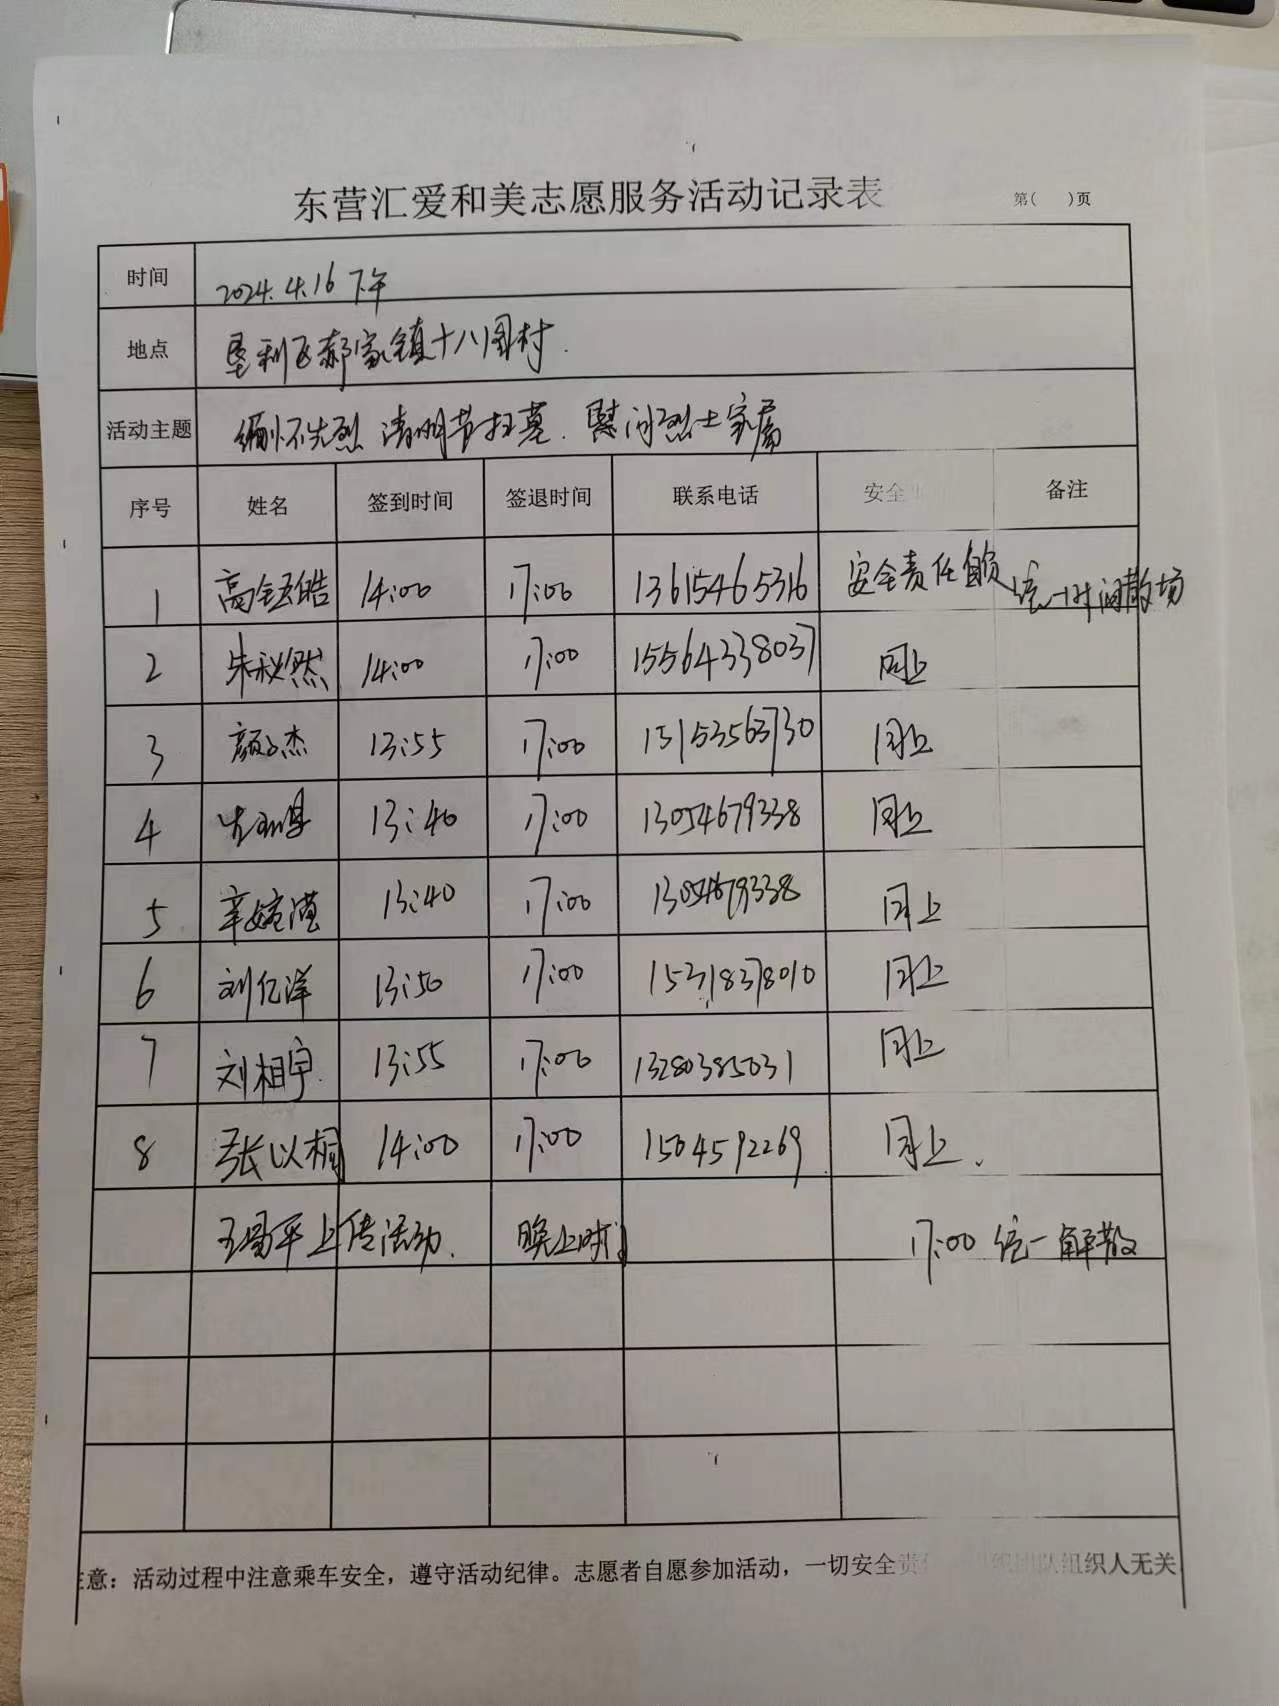 东营汇爱和美志愿服务活动记录表 第( )页
时间 2024.4.16 下午
地点 垦利区郝家镇十八图村.
活动主题 缅怀先烈 清明节扫墓. 慰问烈士家属
序号 姓名 签到时间 签退时间 联系电话 安全 备注
1 14:00 17:00 13615465316 安全责任自负 统一时间散场
2 朱秋然 14:00 17:00 15564338037 同上
3 颜杰 13:55 17:00 15153563730 同上
4 13:40 17:00 13054679338 同上
5 13:40 17:00 13054679338 同上
6 刘亿洋 13:50 17:00 15318378010 同上
7 刘相宇. 13:55 17:00 13280385031 同上
8 张以桐 14:00 17:00 1504592269 同上.
上传活动. 晚上时 17:00 统一解散
意：活动过程中注意乘车安全，遵守活动纪律。志愿者自愿参加活动，一切安全责 团队组织人无关